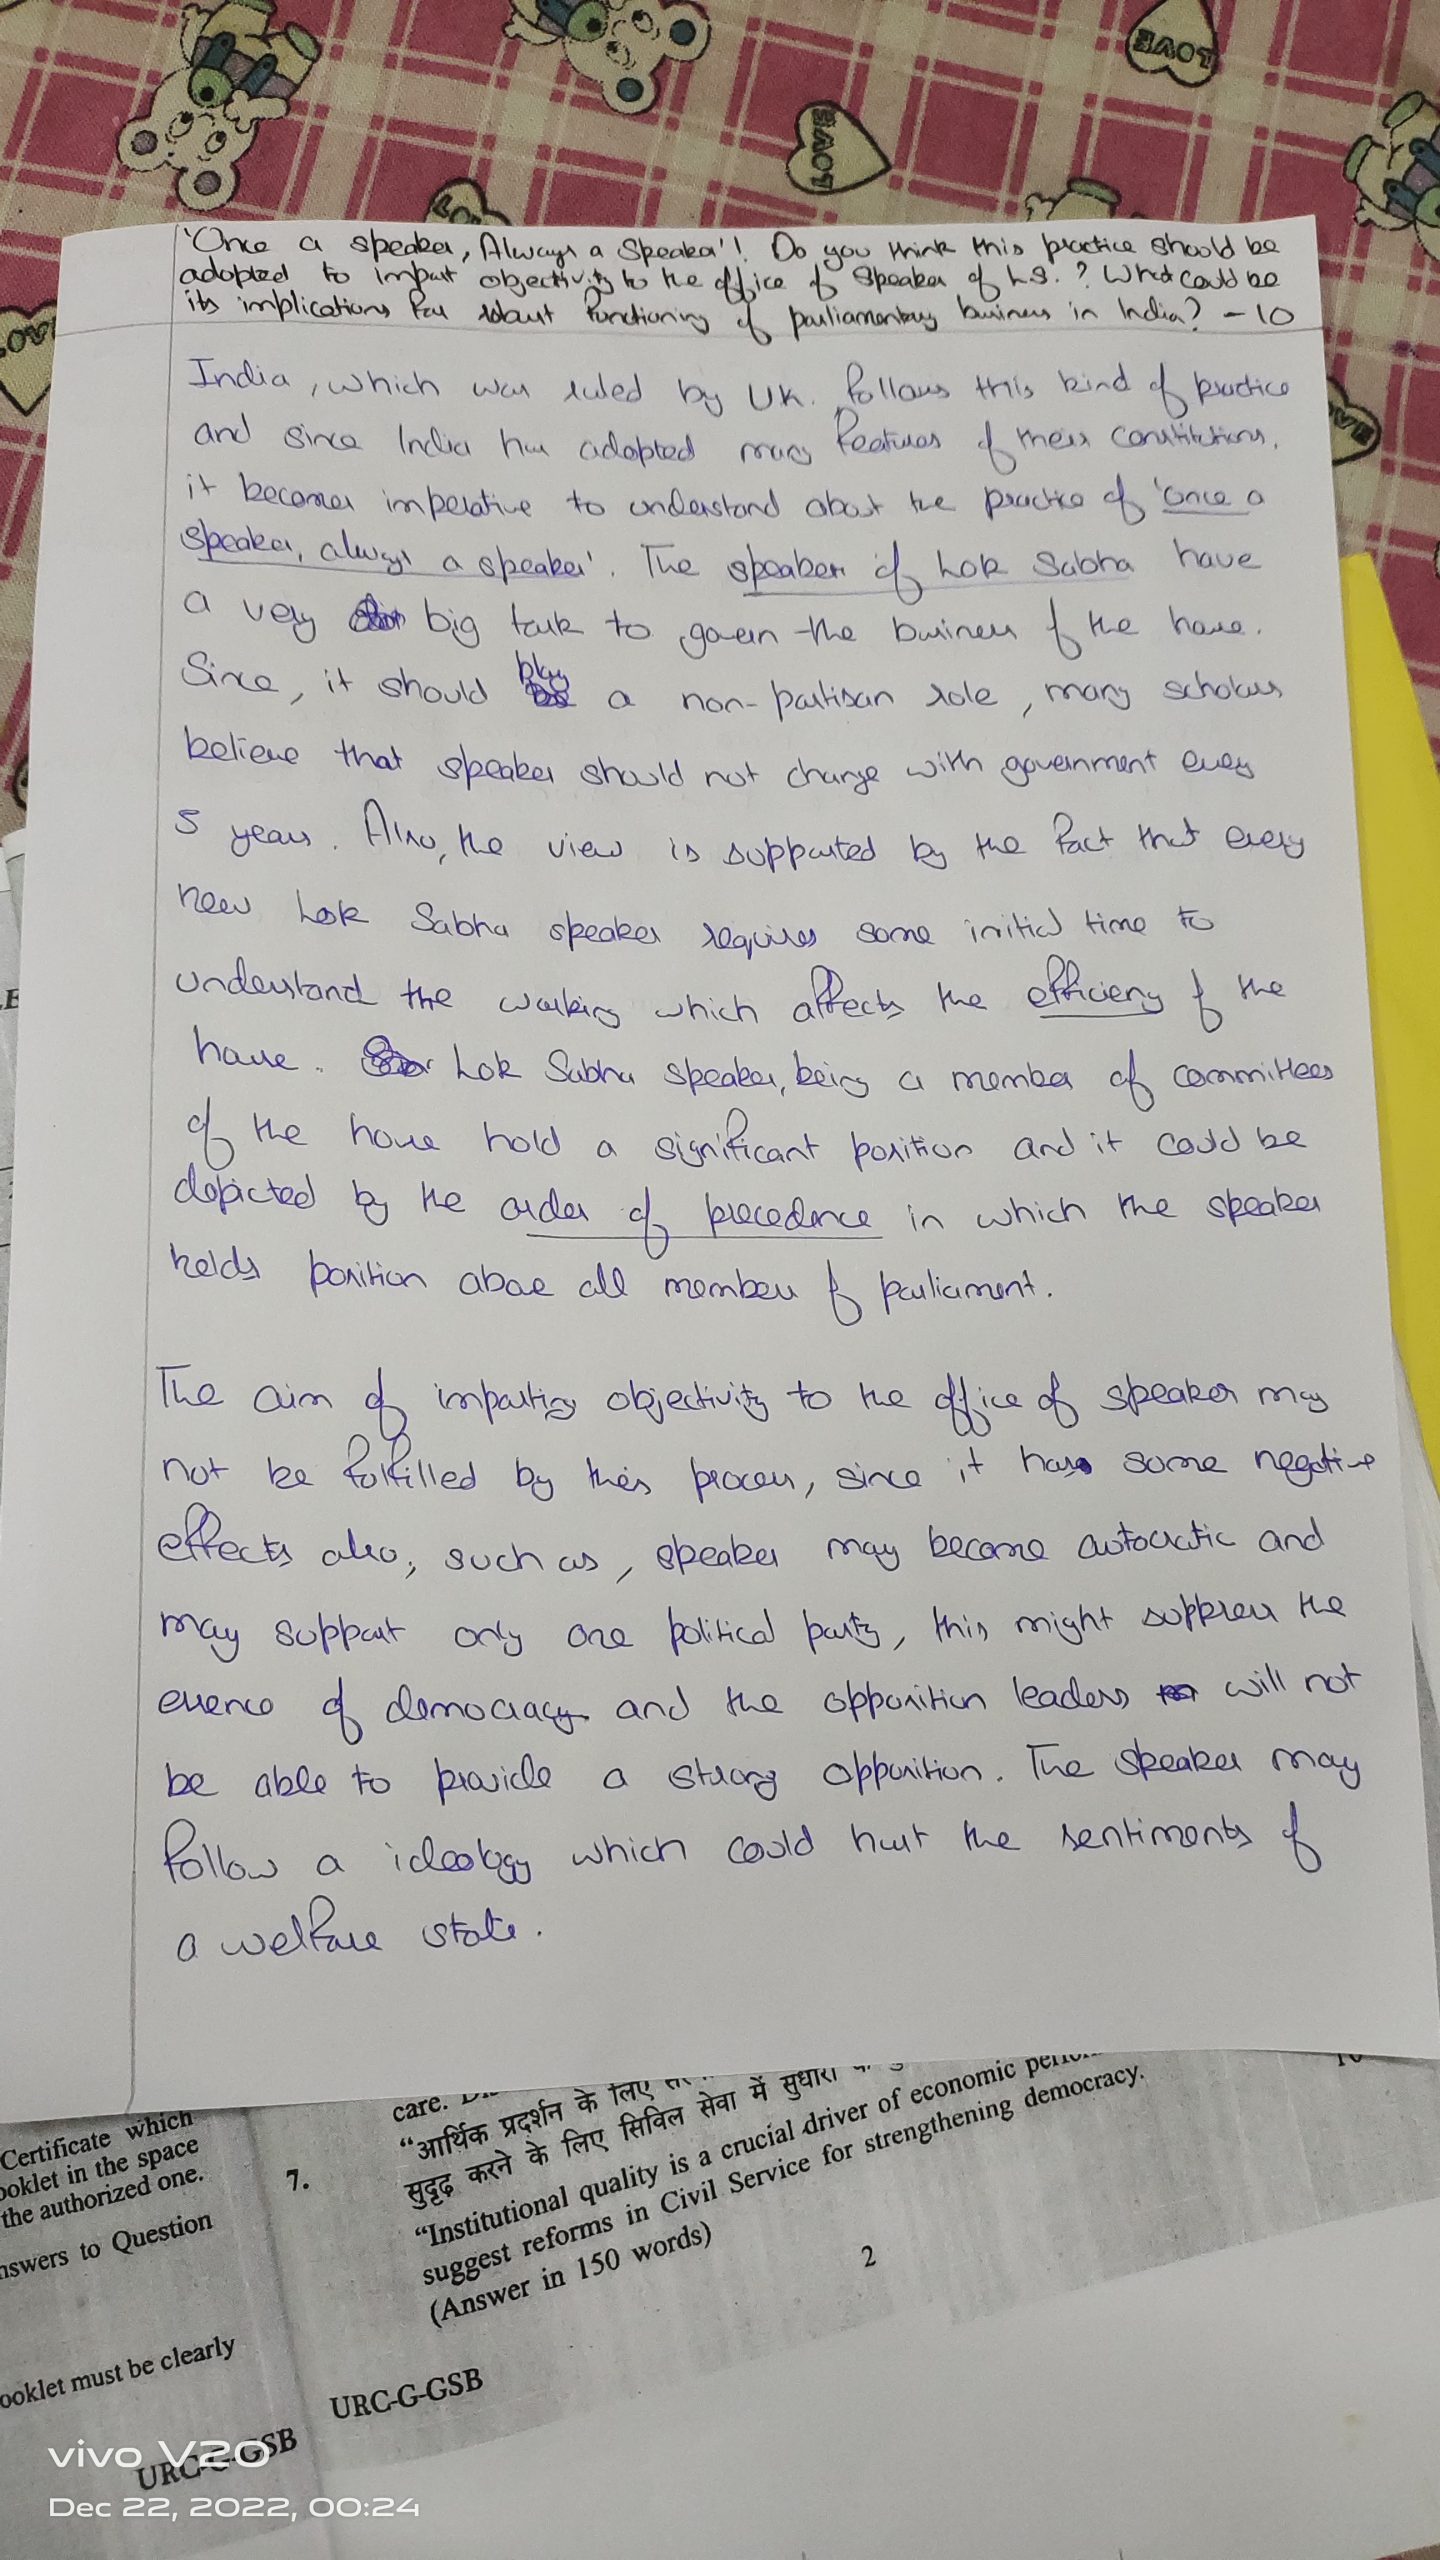 LOVE
LOVE
'Once a speaker, Always a Speaker'! Do you think this practice should be
adopted to impart objectivity to the office of Speaker of L.S.? What could be
its implications for robust functioning of parliamentary business in India? - 10
India, which was ruled by UK. follows this kind of practice
and since India has adopted many features of their constitutions,
it becomes imperative to understand about the practice of 'once a
speaker, always a speaker'. The speaker of Lok Sabha have
a very big task to govern the business of the house.
Since, it should play a non-partisan role, many scholars
believe that speaker should not change with government every
5 years. Also, the view is supported by the fact that every
new Lok Sabha speaker requires some initial time to
understand the working which affects the efficieny of the
house. Lok Sabha speaker, being a member of committees
of the house hold a significant position and it could be
depicted by the order of precedence in which the speaker
holds position above all members of parliament.
The aim of imparting objectivity to the office of speaker may
not be fulfilled by this process, since it has some negative
effects also, such as, speaker may become autocratic and
may support only one political party, this might suppress the
essence of democracy and the opposition leaders will not
be able to provide a strong opposition. The speaker may
follow a ideology which could hurt the sentiments of
a welfare state.
care.
“आर्थिक प्रदर्शन के लिए
सुदृढ़ करने के लिए सिविल सेवा में सुधारों
7. “Institutional quality is a crucial driver of economic
suggest reforms in Civil Service for strengthening democracy.
(Answer in 150 words)
2
URC-G-GSB
Certificate which
ooklet in the space
the authorized one.
nswers to Question
ooklet must be clearly
URC-G-GSB
vivo V20
Dec 22, 2022, 00:24